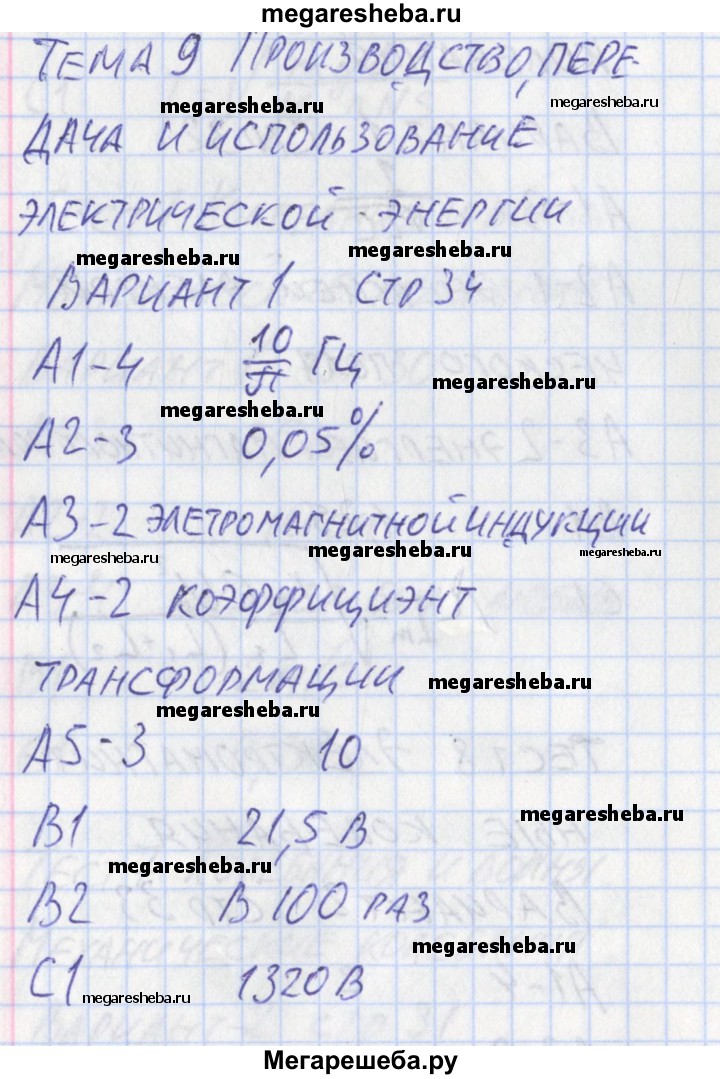 megaresheba.ru
ТЕМА 9 ПРОИЗВОДСТВО, ПЕРЕ-
megaresheba.ru
megaresheba.ru
ДАЧА И ИСПОЛЬЗОВАНИЕ
ЭЛЕКТРИЧЕСКОЙ ЭНЕРГИИ
megaresheba.ru
megaresheba.ru
ВАРИАНТ 1 СТР 34
А1-4 10/π ГЦ
megaresheba.ru
megaresheba.ru
А2-3 0,05%
А3-2 ЭЛЕТРОМАГНИТНОЙ ИНДУКЦИИ
megaresheba.ru
megaresheba.ru
megaresheba.ru
А4-2 КОЭФФИЦИЭНТ
ТРАНСФОРМАЦИИ
megaresheba.ru
megaresheba.ru
А5-3 10
В1 21,5 В
megaresheba.ru
megaresheba.ru
В2 В 100 РАЗ
megaresheba.ru
С1 1320 В
megaresheba.ru
Мегарешеба.ру